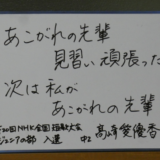 あこがれの先輩
見習い頑張った
次は私が
あこがれの先輩
第20回NHK全国短歌大会
ジュニアの部 入選 中2 高山愛優香